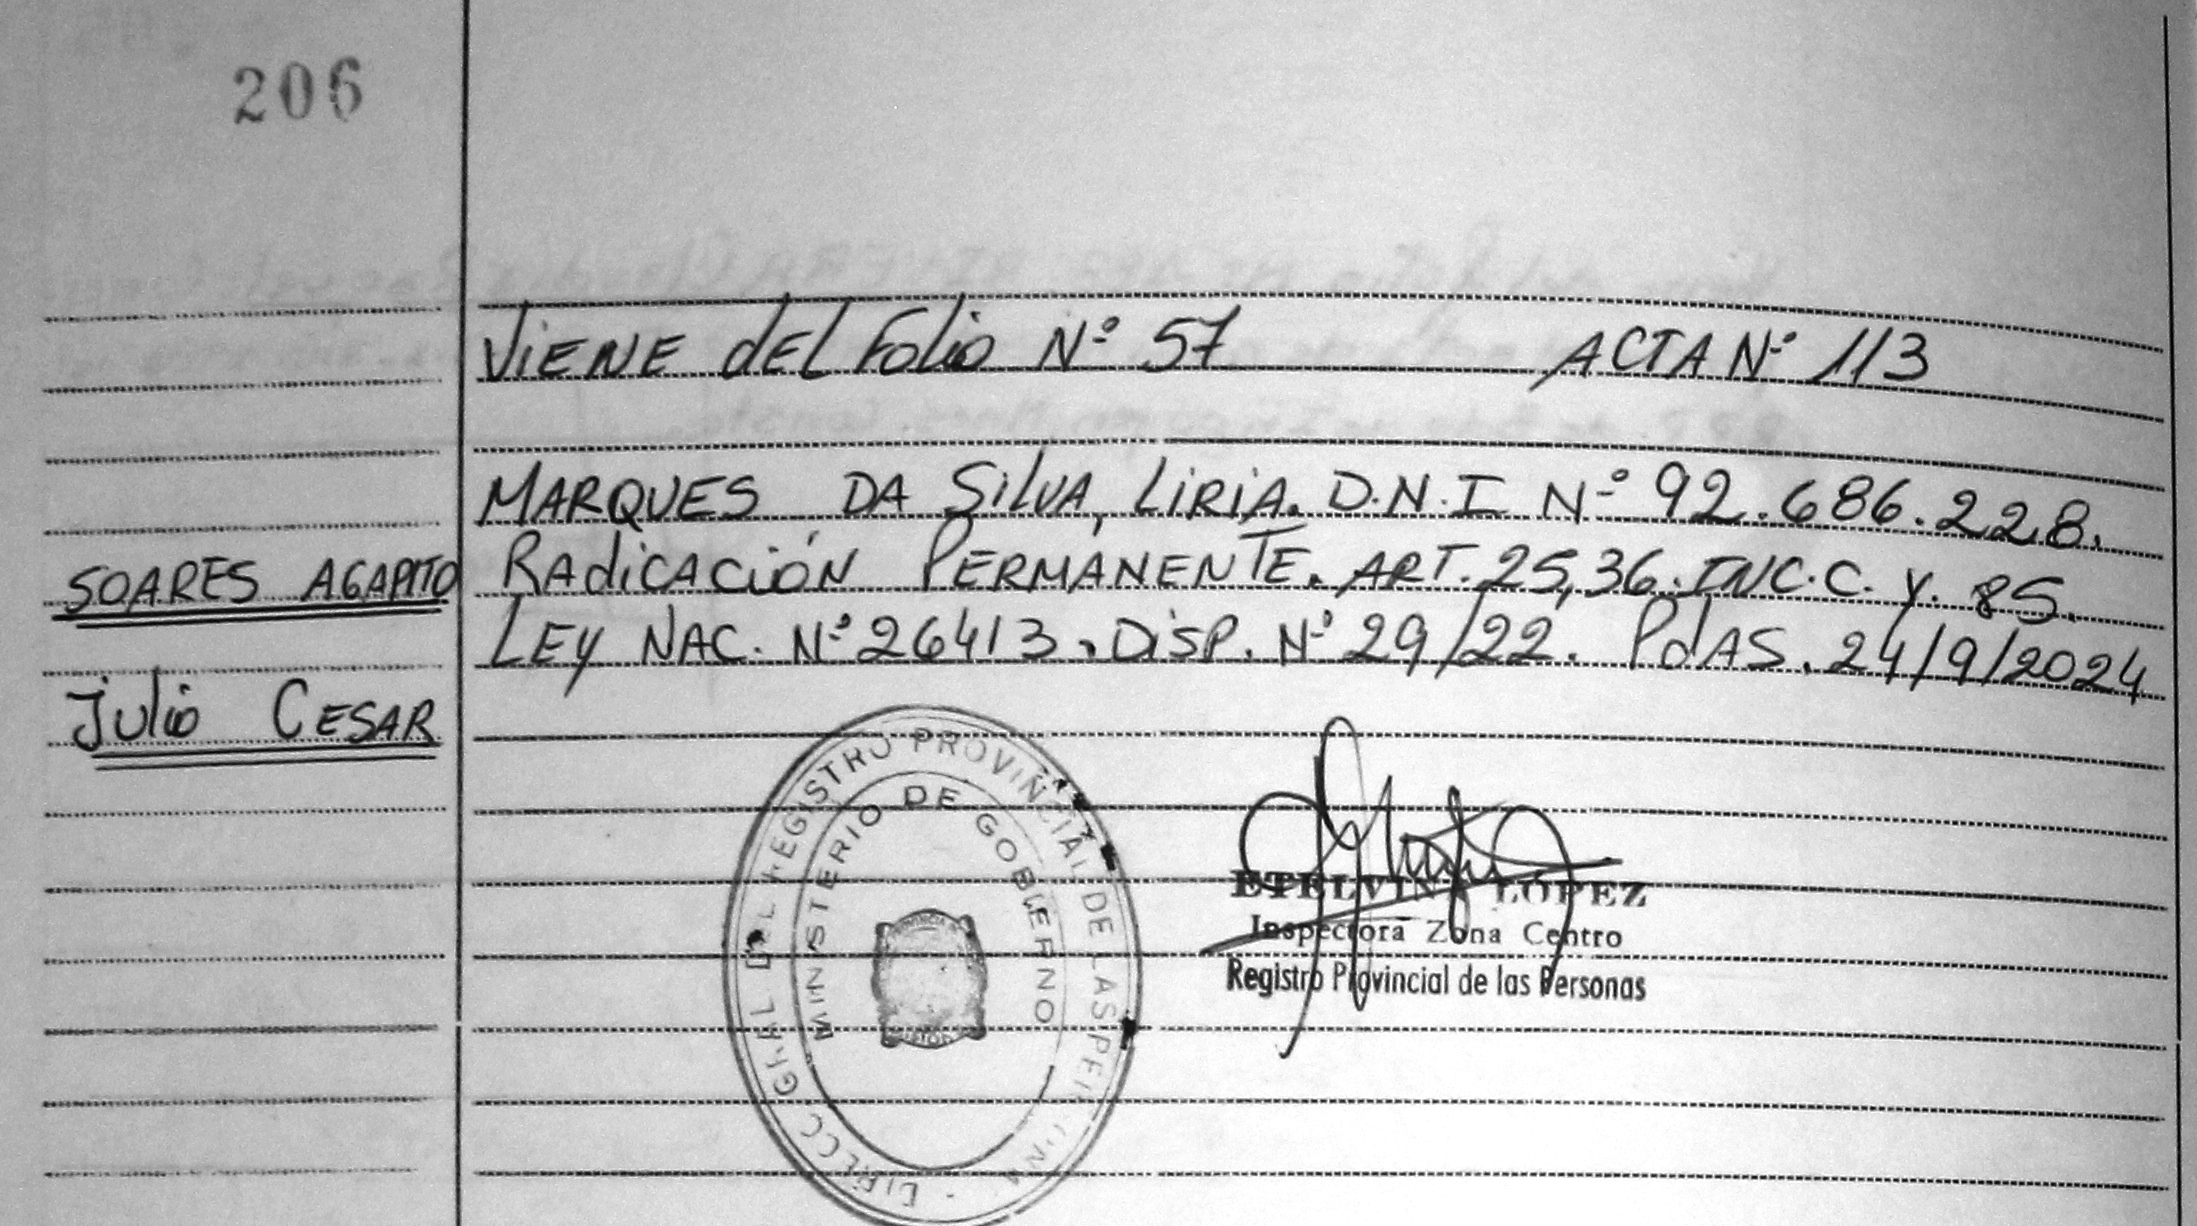 206
ViENE dEL Folio Nº 57 ACTA Nº 113
MARQUES DA SilVA, LiRiA. D.N.I Nº 92.686.228.
SOARES AGAPITO
RAdiCACiÓN PERMANENTE. ART. 25,36. INC. C. y. 85.
LEy NAC. Nº 26413. DiSP. Nº 29/22. PdAS. 24/9/2024
Julio CESAR
DIRECC. GRAL DEL REGISTRO PROVINCIAL DE LAS PERSONAS
MINISTERIO DE GOBIERNO
ETELVINA LÓPEZ
Inspectora Zona Centro
Registro Provincial de las Personas